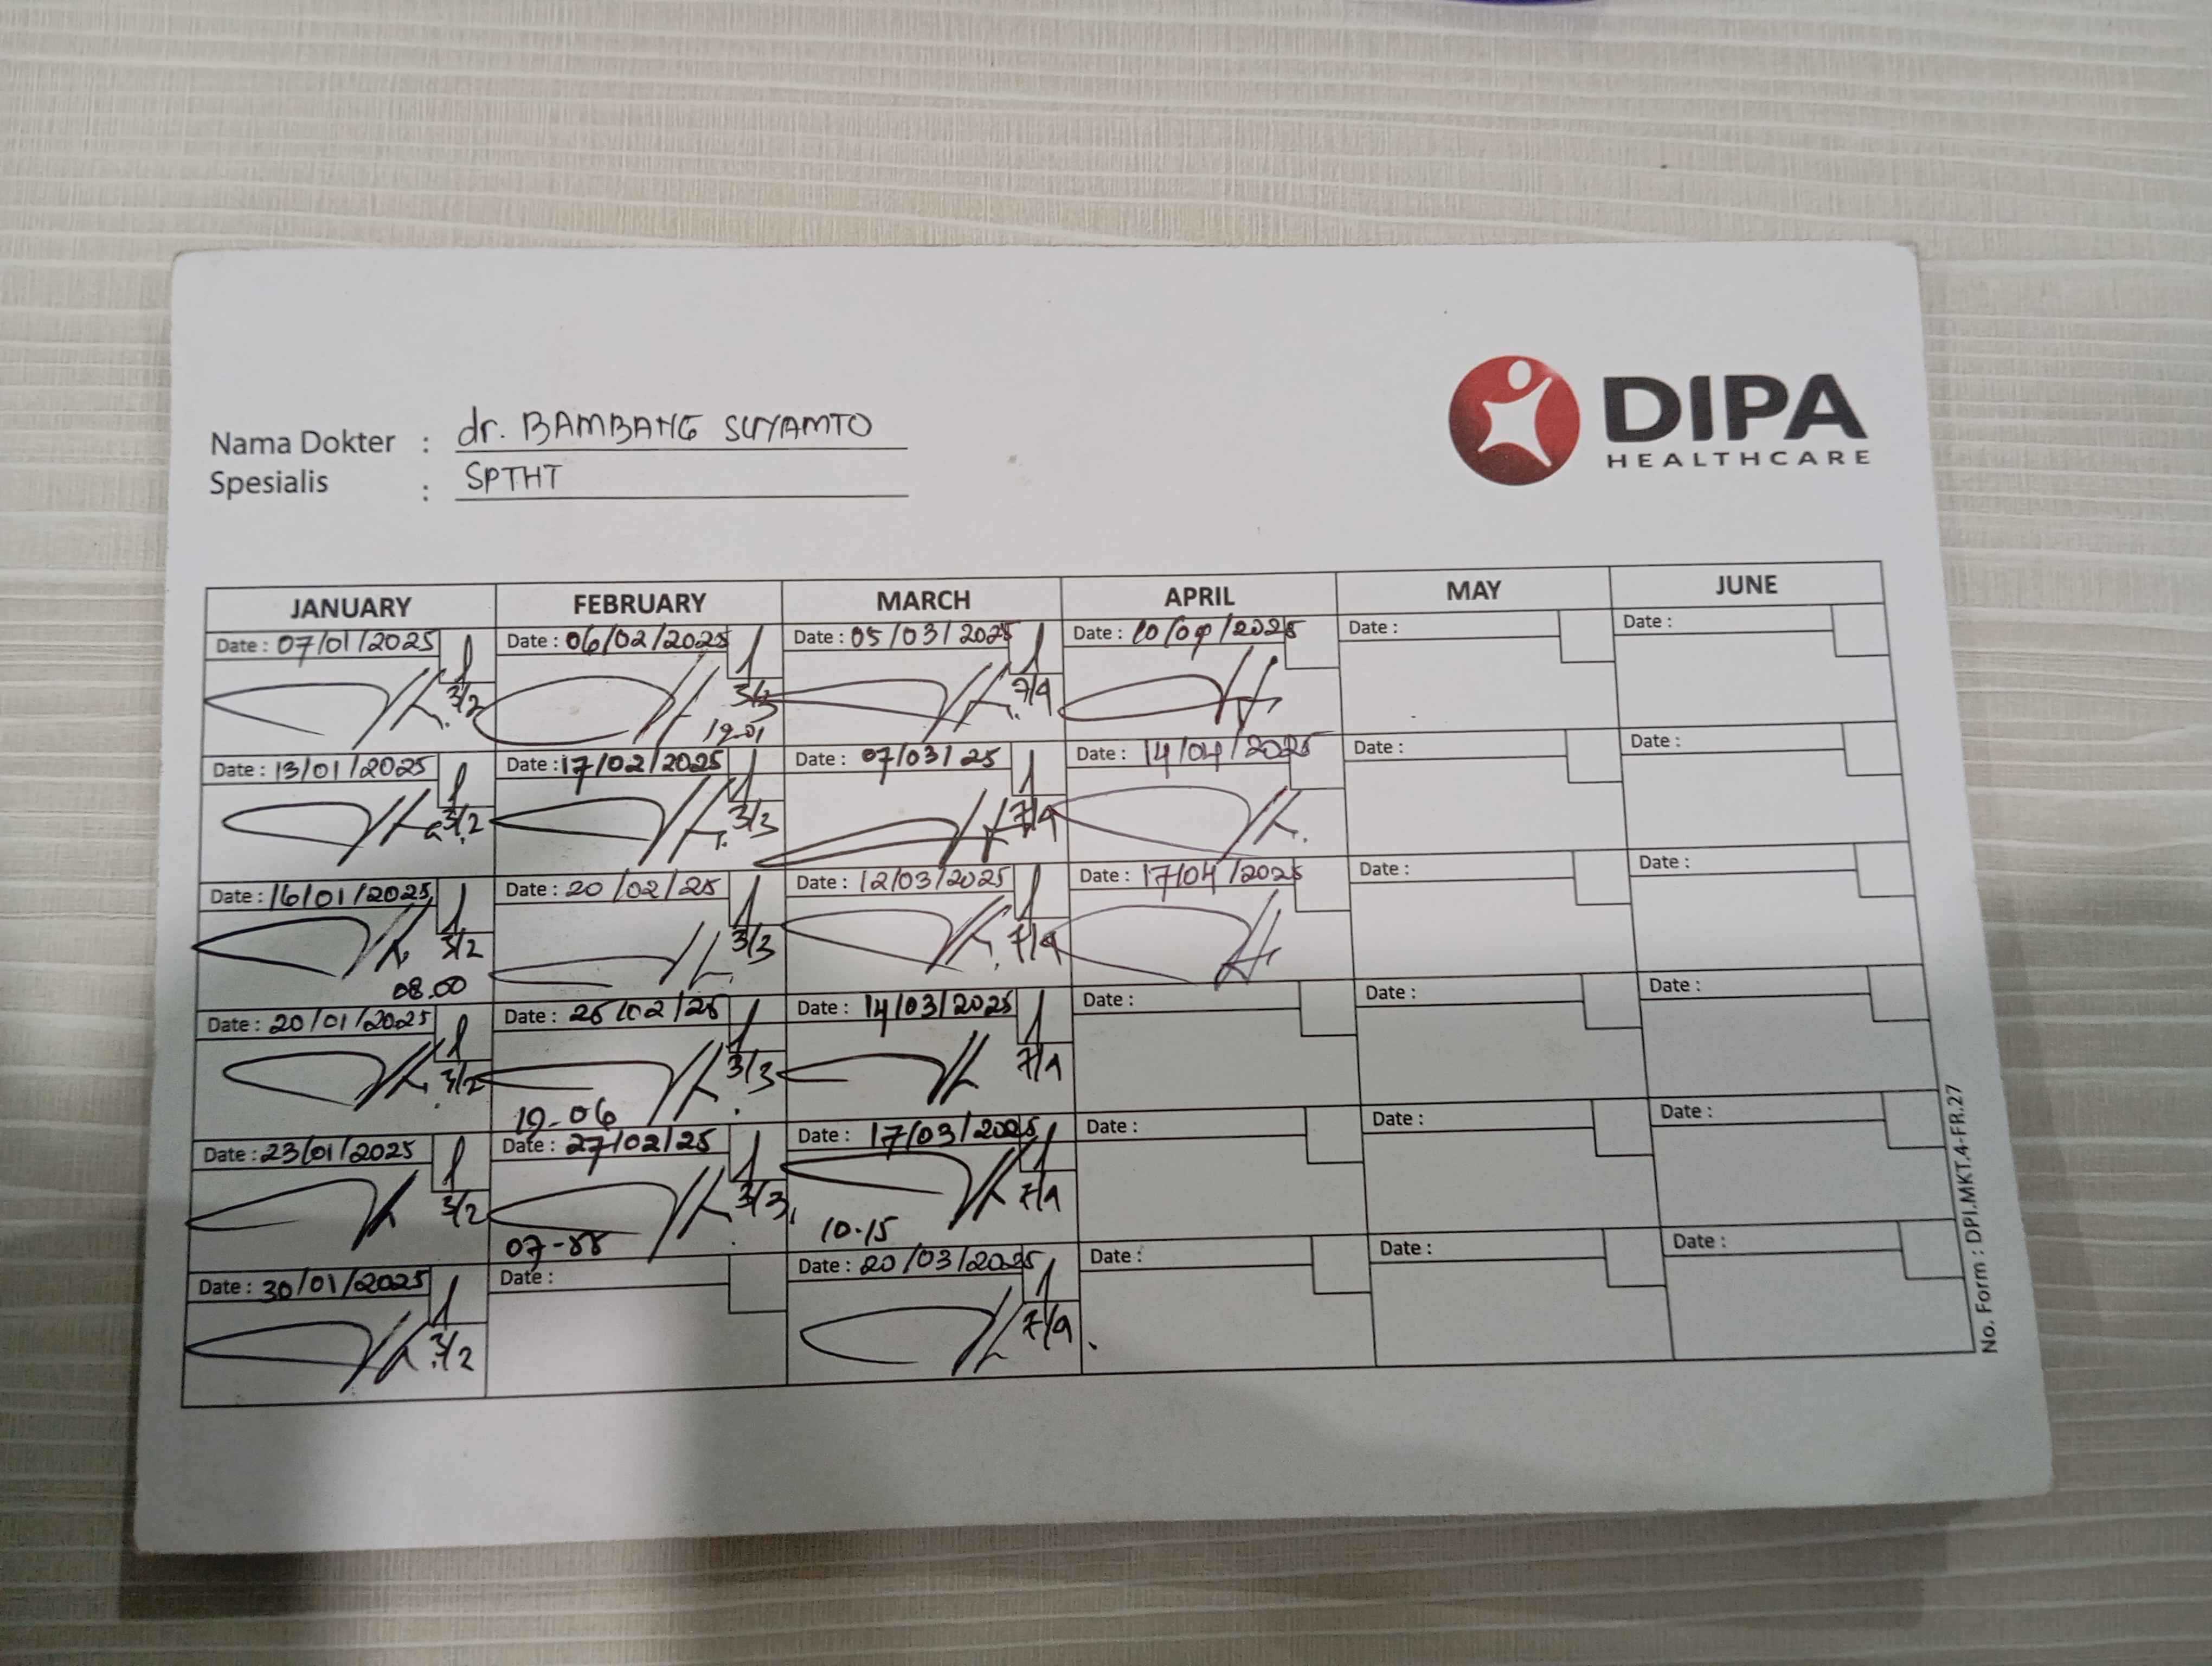 DIPA
HEALTHCARE
Nama Dokter : dr. BAMBANG SUYAMTO
Spesialis : SPTHT
JANUARY FEBRUARY MARCH APRIL MAY JUNE
Date : 07/01/2025 Date : 06/02/2025 Date : 05/03/2025 Date : 10/04/2025 Date : Date :
3/2 3/3 7/4
19-01
Date : 13/01/2025 Date : 17/02/2025 Date : 07/03/25 Date : 14/04/2025 Date : Date :
3/2 3/3 7/4
Date : 16/01/2025 Date : 20/02/25 Date : 12/03/2025 Date : 17/04/2025 Date : Date :
3/2 3/3 7/4
08.00
Date : 20/01/2025 Date : 25/02/25 Date : 14/03/2025 Date : Date : Date :
3/2 3/3 7/4
19-06
Date : 23/01/2025 Date : 27/02/25 Date : 17/03/2025 Date : Date : Date :
3/2 3/3 7/4
10.15
Date : 30/01/2025 Date : Date : 20/03/2025 Date : Date : Date :
3/2 7/4
No. Form : DPI.MKT.4-FR.27